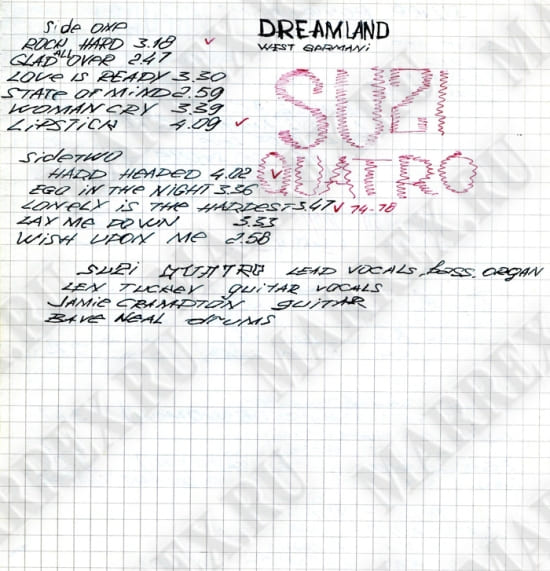 Side ONE
ROCK HARD 3.18
GLAD ALL OVER 2.47
LOVE is READY 3.30
STATE OF MIND 2.59
WOMAN CRY 3.39
LiPSTiCK 4.09
DREAMLAND
WEST GERMANi
SUZI
QUATRO
Side TWO
HARD HEADED 4.02
EGO IN THE NIGHT 3.36
LONELY iS THE HARDEST 3.47 74-78
LAY ME DOWN 3.33
WiSH UPON ME 2.58
SUZI QUATRO LEAD VOCALS, bass, ORGAN
LEN TUCKEY guiTAR VOCALS
JAMiE CRAMPTON guiTAR
BAVE NEAL drums
MARREX.RU